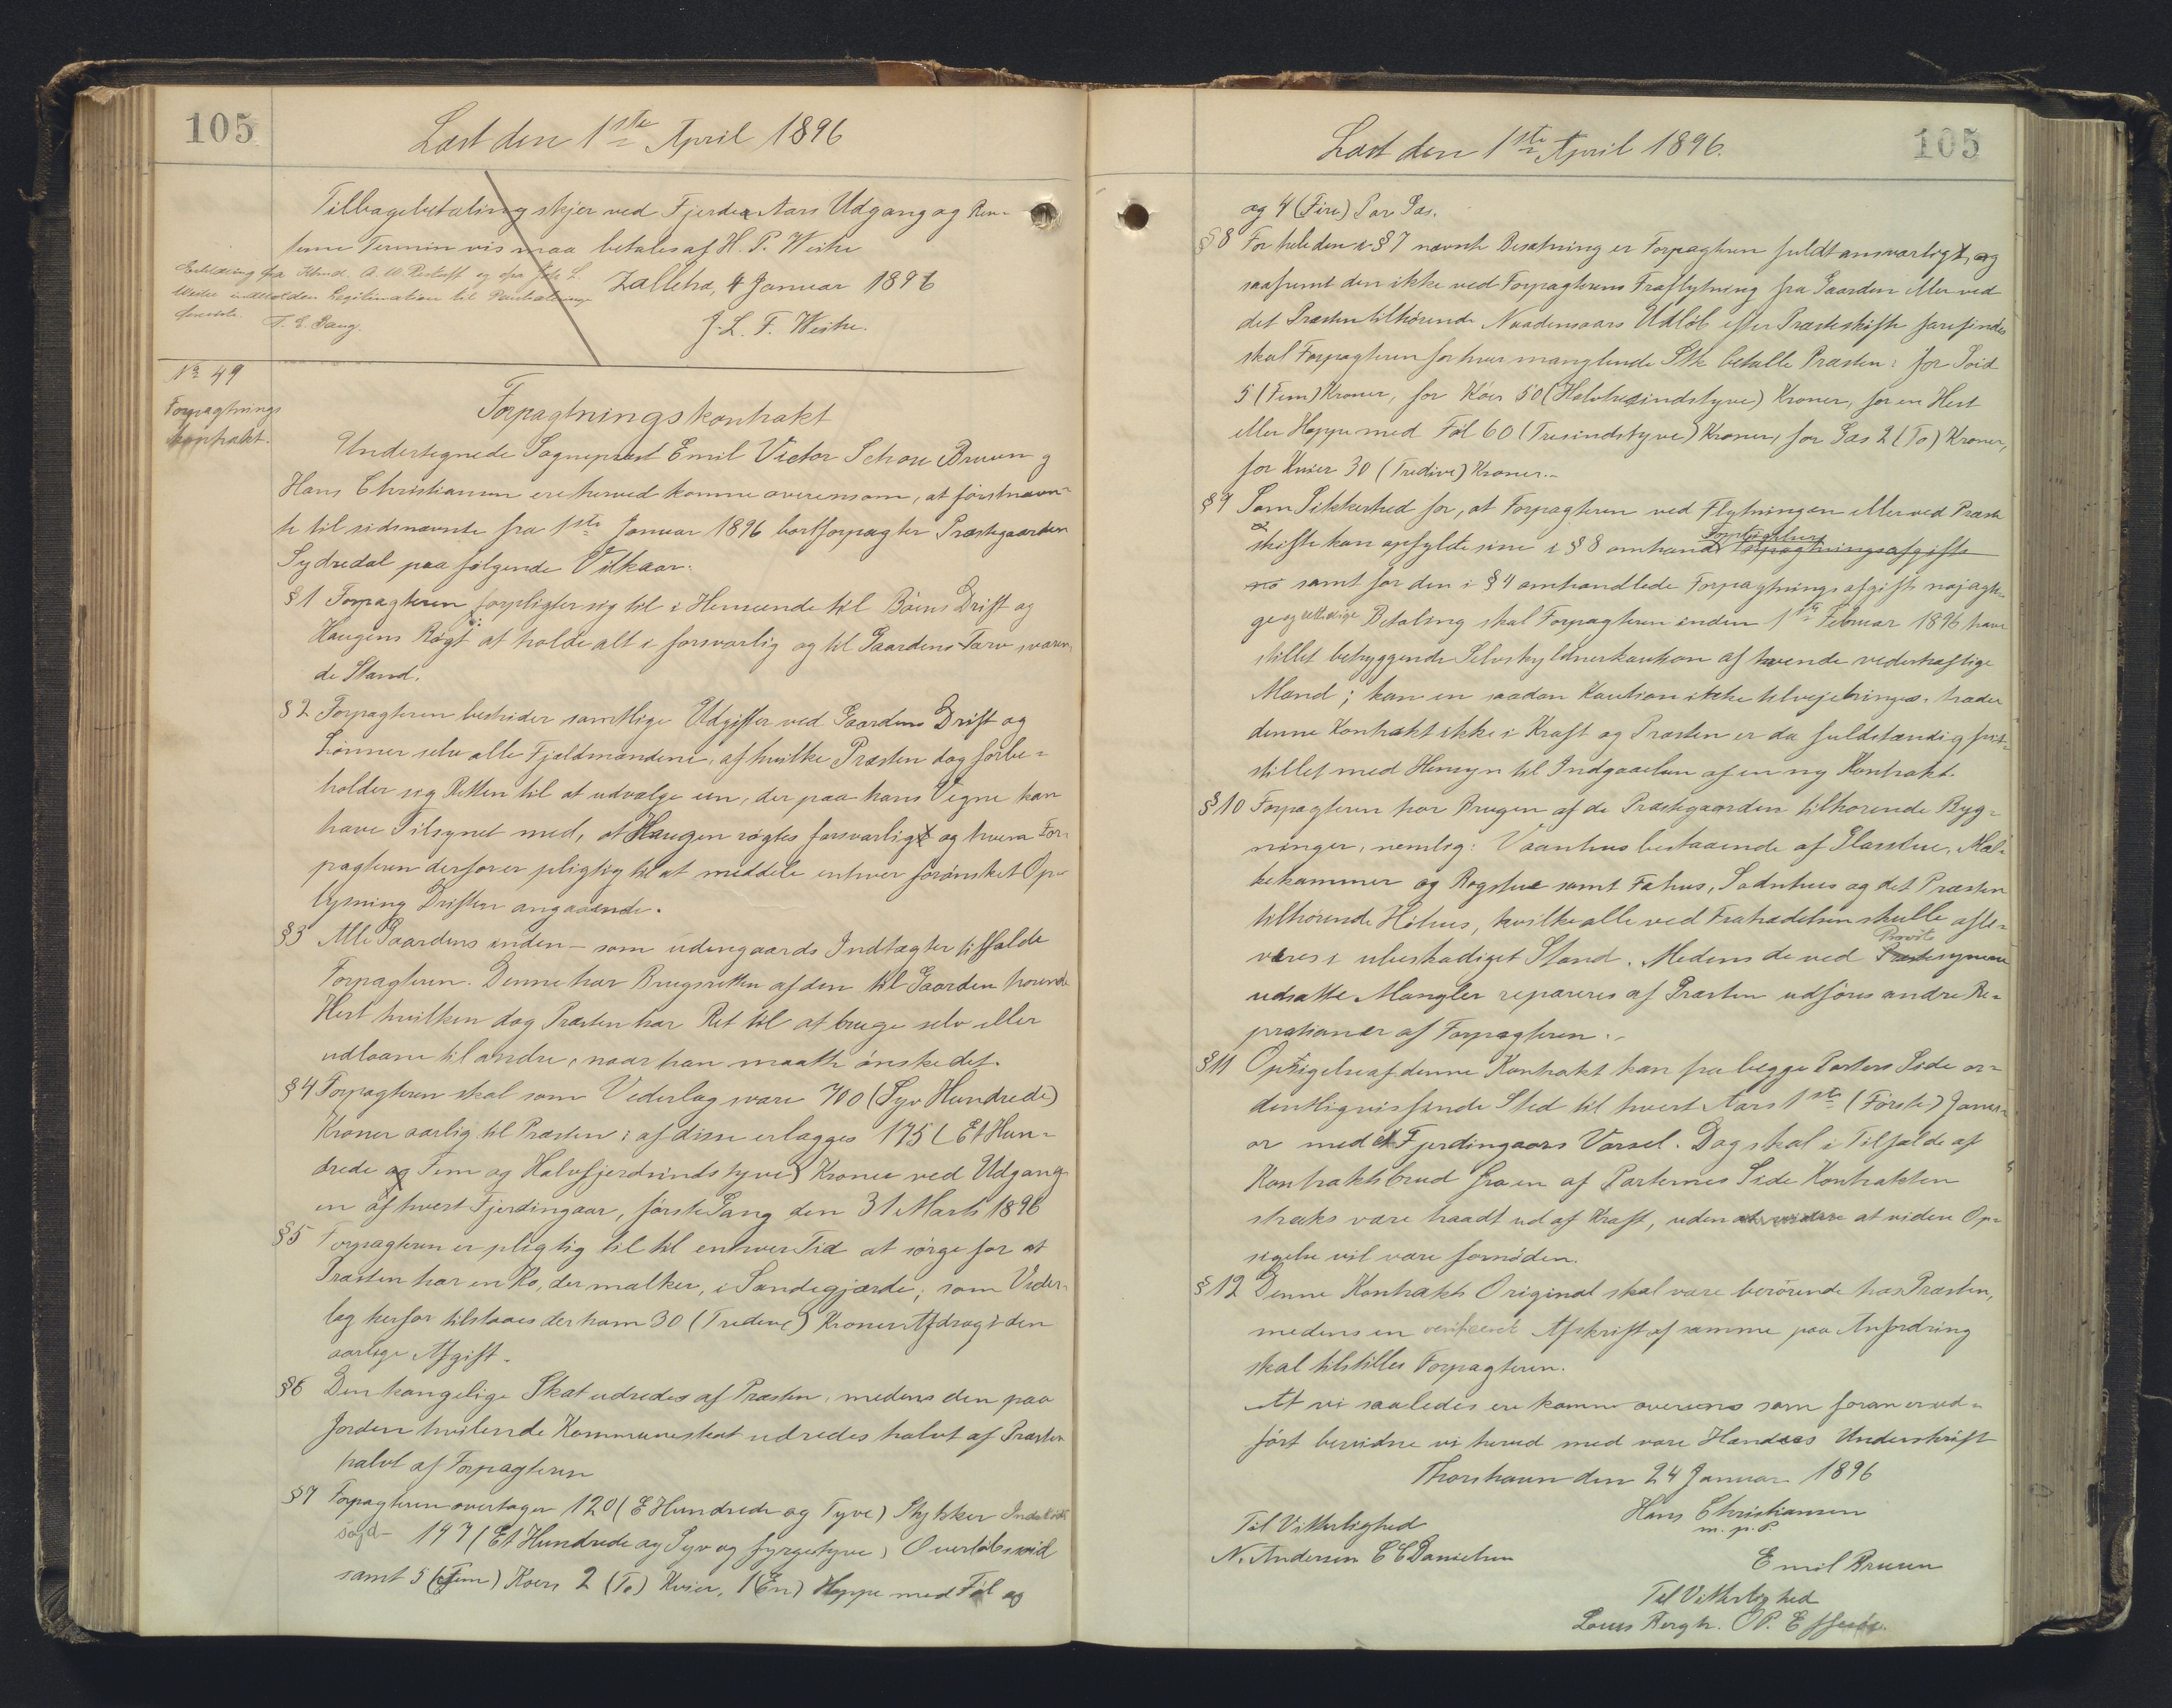 105
Læst den 1ste April 1896
Tilbagebetaling skjer ved Fjerde Aars Udgang og Ren-
terne Termin vis maa betales af H. P. Weihe
Zalletra, 4 Januar 1896
J. L. F. Weihe.
Erklæring fra
indeholder Legitimation til Pantsætning
No 49
Forpagtnings
kontrakt.
Forpagtningskontrakt
Undertegnede Sognepræst Emil Victor Schou Bruun og
Hans Christiansen ere herved komne overens om, at førstnævn-
te til sidsnævnte fra 1ste Januar 1896 bortforpagter Præstegaarden
Sydredal paa følgende Vilkaar:
§1 Forpagteren forpligter sig til i Henseende til Bøens Drift og
Haugens Røgt at holde alt i forsvarlig og til Gaardens Tarv svaren-
de Stand.
§2 Forpagteren bestrider samtlige Udgifter ved Gaardens Drift og
Lønner selv alle Fjeldmændene, af hvilke Præsten dog forbe-
holder sig Retten til at udvælge een, der paa hans Vegne kan
have Tilsynet med, at Haugen røgtes forsvarligt og hvem For-
pagteren derfor er pligtig til at meddele enhver forønsket Op-
lysning Driften angaaende.
§3 Alle Gaardens inden- som udengaards Indtægter tilfalde
Forpagteren. Denne har Brugsretten af den til Gaarden hørende
Hest hvilken dog Præsten har Ret til at bruge selv eller
udlaane til andre, naar han maatte ønske det.
§4 Forpagteren skal som Vederlag svare 700 (Syv Hundrede)
Kroner aarlig til Præsten; af disse erlægges 175 (Et Hun-
drede og Fem og Halvfjerdsindstyve) Kroner ved Udgang-
en af hvert Fjerdingaar, første Gang den 31 Marts 1896
§5 Forpagteren er pligtig til til enhver Tid at sørge for at
Præsten har en Ko, der malker, i Sandegjærde; som Veder-
lag herfor tilstaaes der ham 30 (Tredive) Kroner Afdrag i den
aarlige Afgift.
§6 Den kongelige Skat udredes af Præsten, medens den paa
Jorden hvilende Kommuneskat udredes halvt af Præsten
halvt af Forpagteren
§7 Forpagteren overtager 120 (Et Hundrede og Tyve) Stykker
147 (Et Hundrede og Syv og fyrgetyve) Overløbssoid
samt 5 (Fem) Koer, 2 (To) Kvier, 1 (En) Hoppe med Føl og
Læst den 1ste April 1896.
105
og 4 (Fire) Par Gæs.
§8 For hele den i §7 nævnte Besætning er Forpagteren fuldt ansvarligt, og
saafremt den ikke ved Forpagterens Fraflytning fra Gaarden eller ved
det Præsten tilhørende Naadensaars Udløb efter Præsteskifte forefindes
skal Forpagteren for hver manglende Stk betalle Præsten: for Soid
5 (Fem) Kroner, for Køer 50 (Halvtresindstyve) Kroner, for en Hest
eller Hoppe med Føl 60 (Tresindstyve) Kroner, for Gæs 2 (To) Kroner,
for Kvier 30 (Tredive) Kroner.-
§9 Som Sikkerhed for, at Forpagteren ved Flytningen eller ved Præste
skifte kan opfylde sine i §8 omhand Forpligtelser Forpagtningsafgifts
samt for den i §4 omhandlede Forpagtningsafgifts nøjagti-
ge og rettidige Betaling skal Forpagteren inden 1ste Februar 1896 have
stillet betryggende Selvskyldnerkaution af tvende vederhæftige
Mænd; kan en saadan Kaution ikke tilvejebringes, træder
denne Kontrakt ikke i Kraft og Præsten er da fuldstændig frit-
stillet med Hensyn til Indgaaelsen af en ny Kontrakt.
§10 Forpagteren har Brugen af de Præstegaarden tilhørende Byg-
ninger, nemlig: Vaanhus bestaaende af Glasstue, Mæl-
kekammer og Røgstue samt Fæhus, Sodnhus og det Præsten
tilhørende Høhus, hvilke alle ved Fratrædelsen skulle afle-
veres i ubeskadiget Stand. Medens de ved Provste Præstesynene
udsatte Mangler repareres af Præsten udføres andre Re-
prationer af Forpagteren.-
§11 Opsigelse af denne Kontrakt kan fra begge Parters Side or-
dentligvis finde Sted til hvert Aars 1ste (Første) Janu-
ar med et Fjerdingaars Varsel. Dog skal i Tilfælde af
Kontraktsbrud fra en af Parternes Side Kontrakten
straks være traadt ud af Kraft, uden at videre at viden Op-
sigelse vil være fornøden.
§12 Denne Kontrakts Original skal være beroende hos Præsten,
medens en verificeret Afskrift af samme paa Anfordring
skal tilstilles Forpagteren.
At vi saaledes ere komne overens som foran er ud-
ført bevidne vi herved med vore Hænders Underskrift
Thorshavn den 24 Januar 1896
Hans Christiansen
m. p. P.
Til Vitterlighed
N. Andersen C C Danielsen
Emil Bruun
Til Vitterlighed
Louis Bergh. O. P. Effersøe.